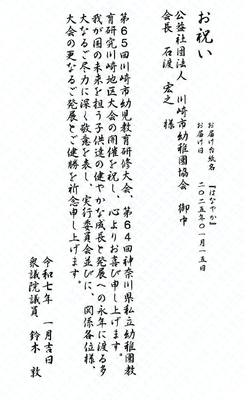 お祝い
お届け台紙名
『はなやか』
お届け日
二〇二五年〇一月一五日
公益社団法人 川崎市幼稚園協会 御中
会長 石渡 宏之 様
第65回川崎市幼児教育研修大会、第64回神奈川県私立幼稚園教
育研究川崎地区大会の開催を祝し、心よりお喜び申し上げます。
我が国の未来を担う子供達の健やかな成長と発展への永年に渡る多
大なるご尽力に深く敬意を表し、実行委員会並びに、関係各位様、
大会の更なるご発展とご健勝を祈念申し上げます。
令和七年 一月吉日
衆議院議員 鈴木 敦